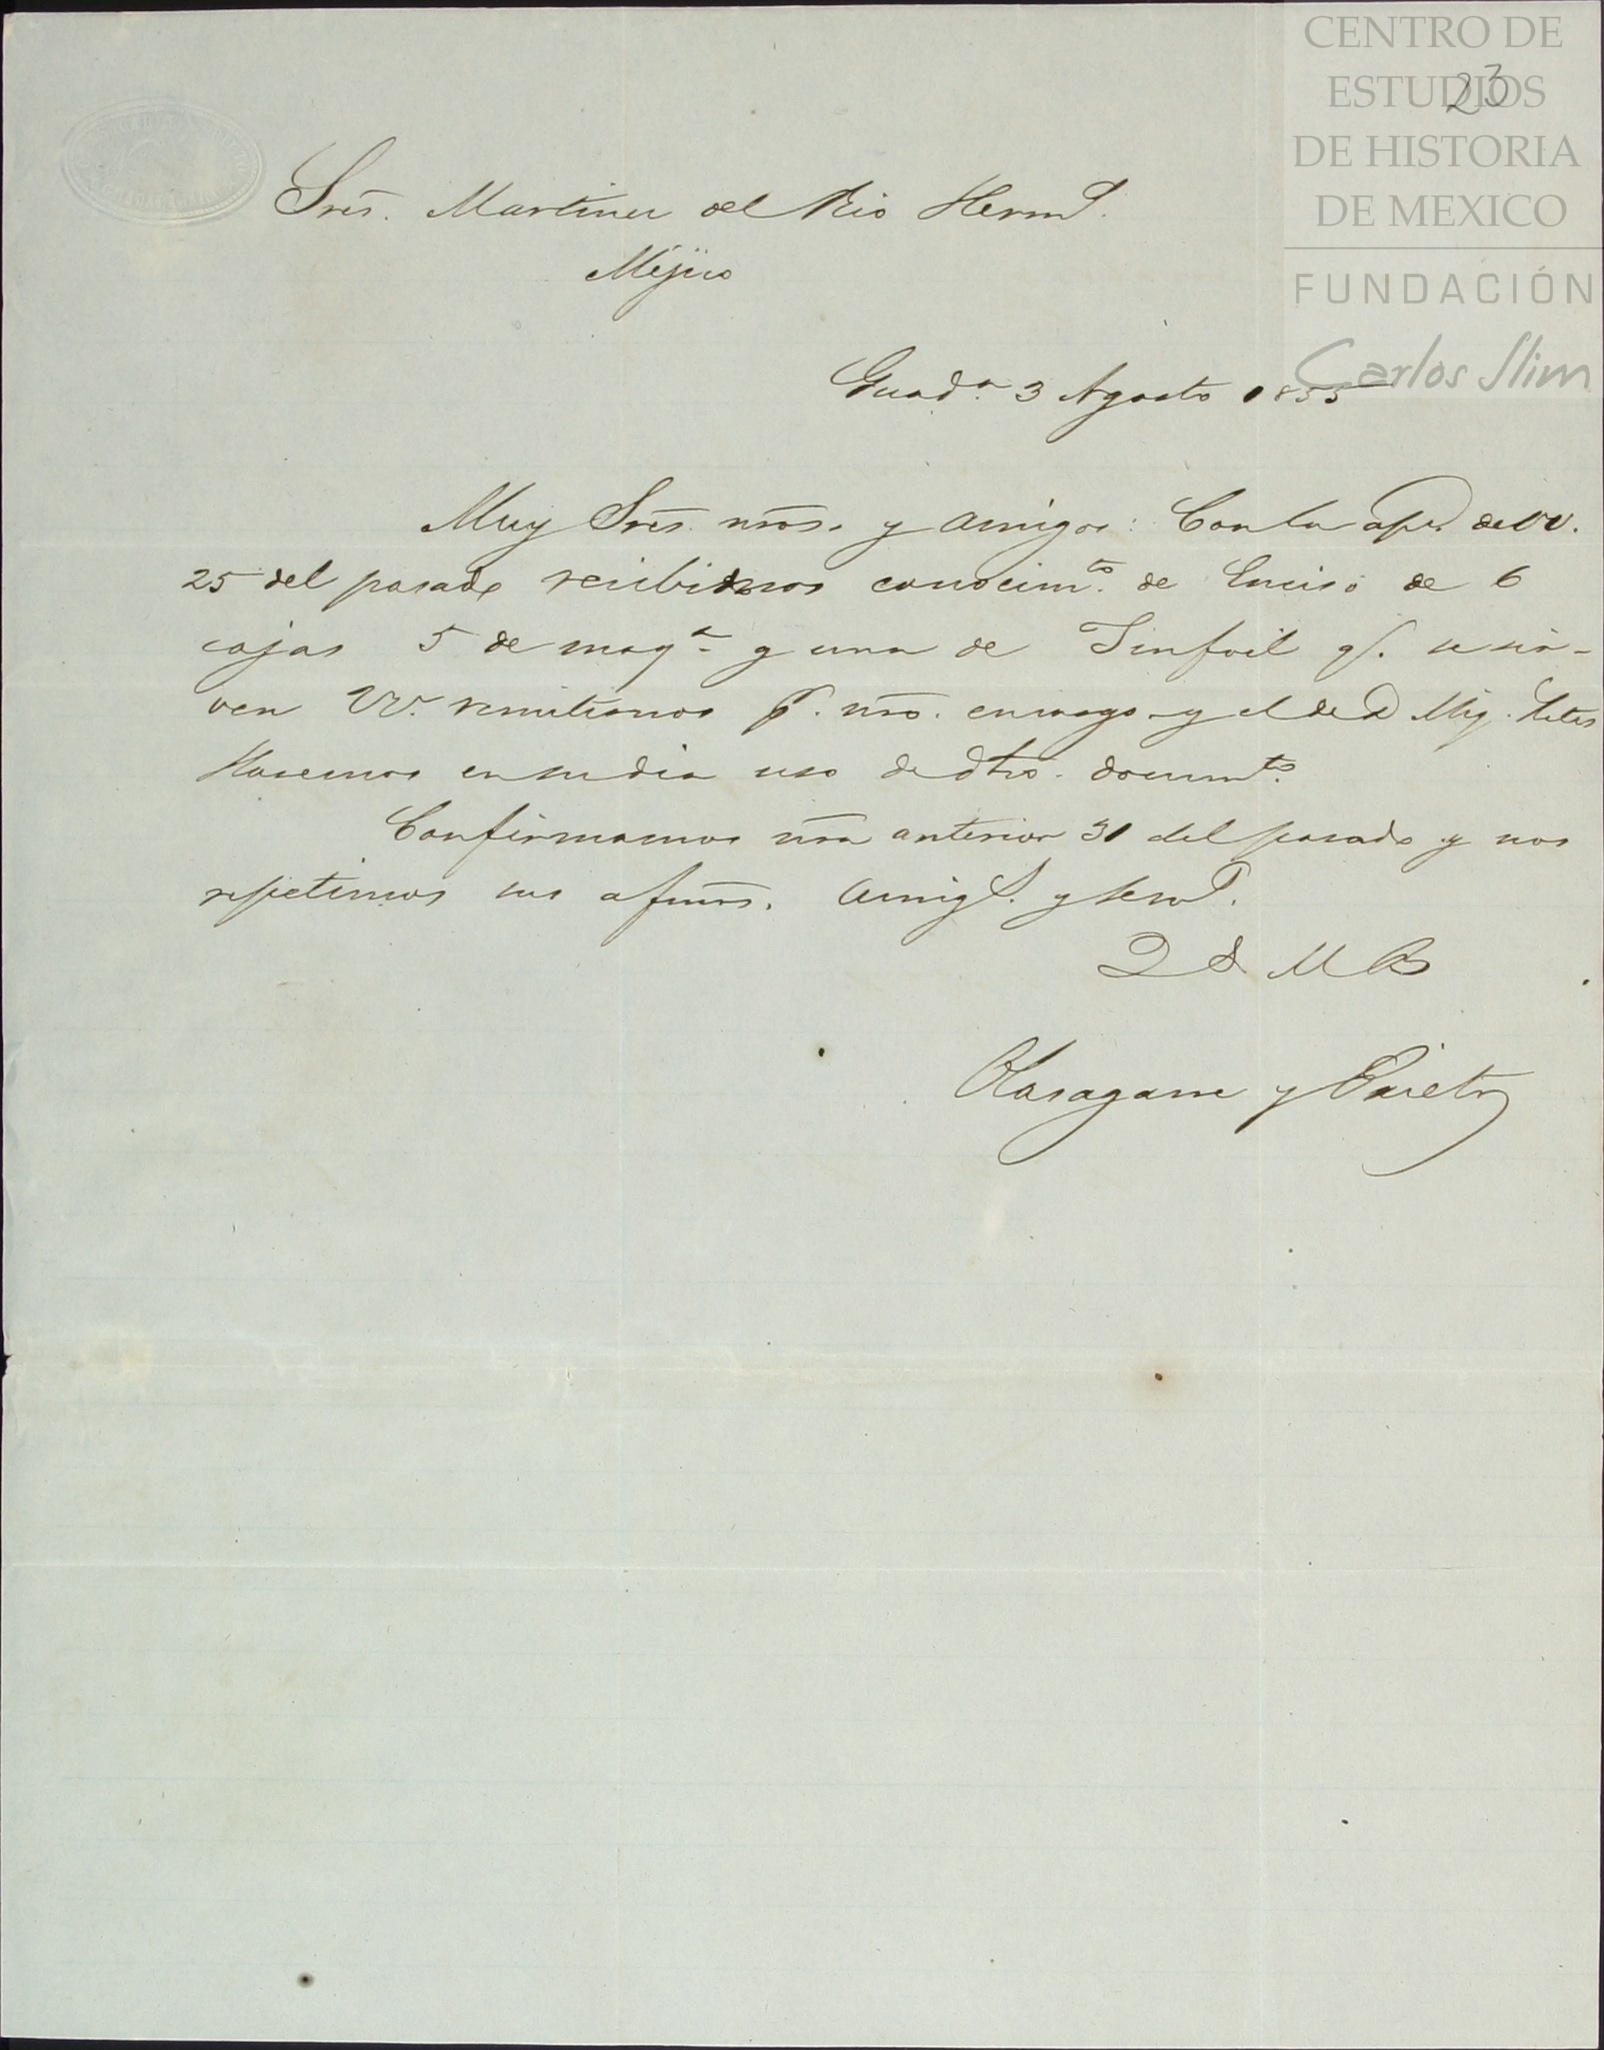 CENTRO DE
ESTUDIOS
DE HISTORIA
DE MEXICO
FUNDACIÓN
Carlos Slim
23
Sres. Martinez del Rio Herms.
Méjico
Guada. 3 Agosto 1855
Muy Sres. nros. y amigos: Con la apble. de VV.
25 del pasado recibimos conocimto. de Enciso de 6
cajas 5 de maqa. y una de Tinfoil q. se sir-
ven VV. remitirnos p. nro. encargo y el de D Mig.
Haremos en su dia uso de dho. documto.
Confirmamos nra anterior 31 del pasado y nos
repetimos sus afmos. amigs. y servs.
Q B M B
Olasagarre y Prieto